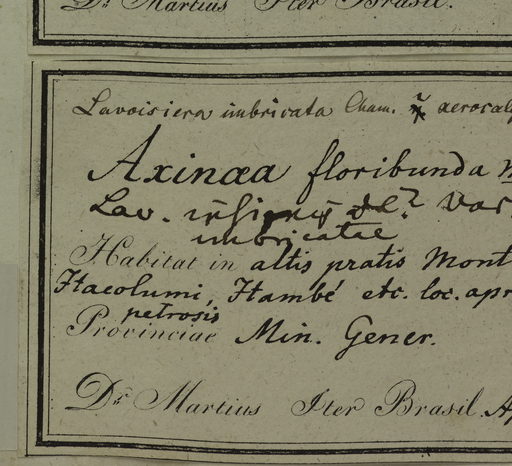 Dr Martius Iter Brasil.
Lavoisiera imbricata Cham. aerocal
Axinæa floribunda
Lav. insignis DC? var.
imbricatae
Habitat in altis pratis Mont
Itacolumi, Itambé etc. loc. apr
petrosis
Provinciae Min. Gener.
Dr Martius Iter Brasil. Ap